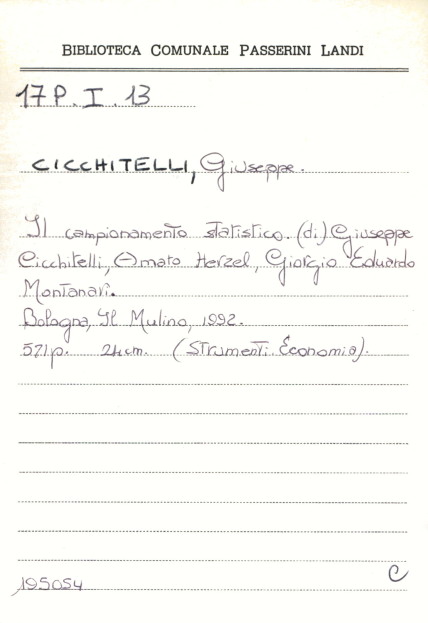 BIBLIOTECA COMUNALE PASSERINI LANDI
17 P. I. 13
CICCHITELLI, Giuseppe.
Il campionamento statistico. (di) Giuseppe
Cicchitelli, Amato Herzel, Giorgio Eduardo
Montanari.
Bologna, Il Mulino, 1992.
571p. 24cm. (Strumenti. Economia).
C
195054